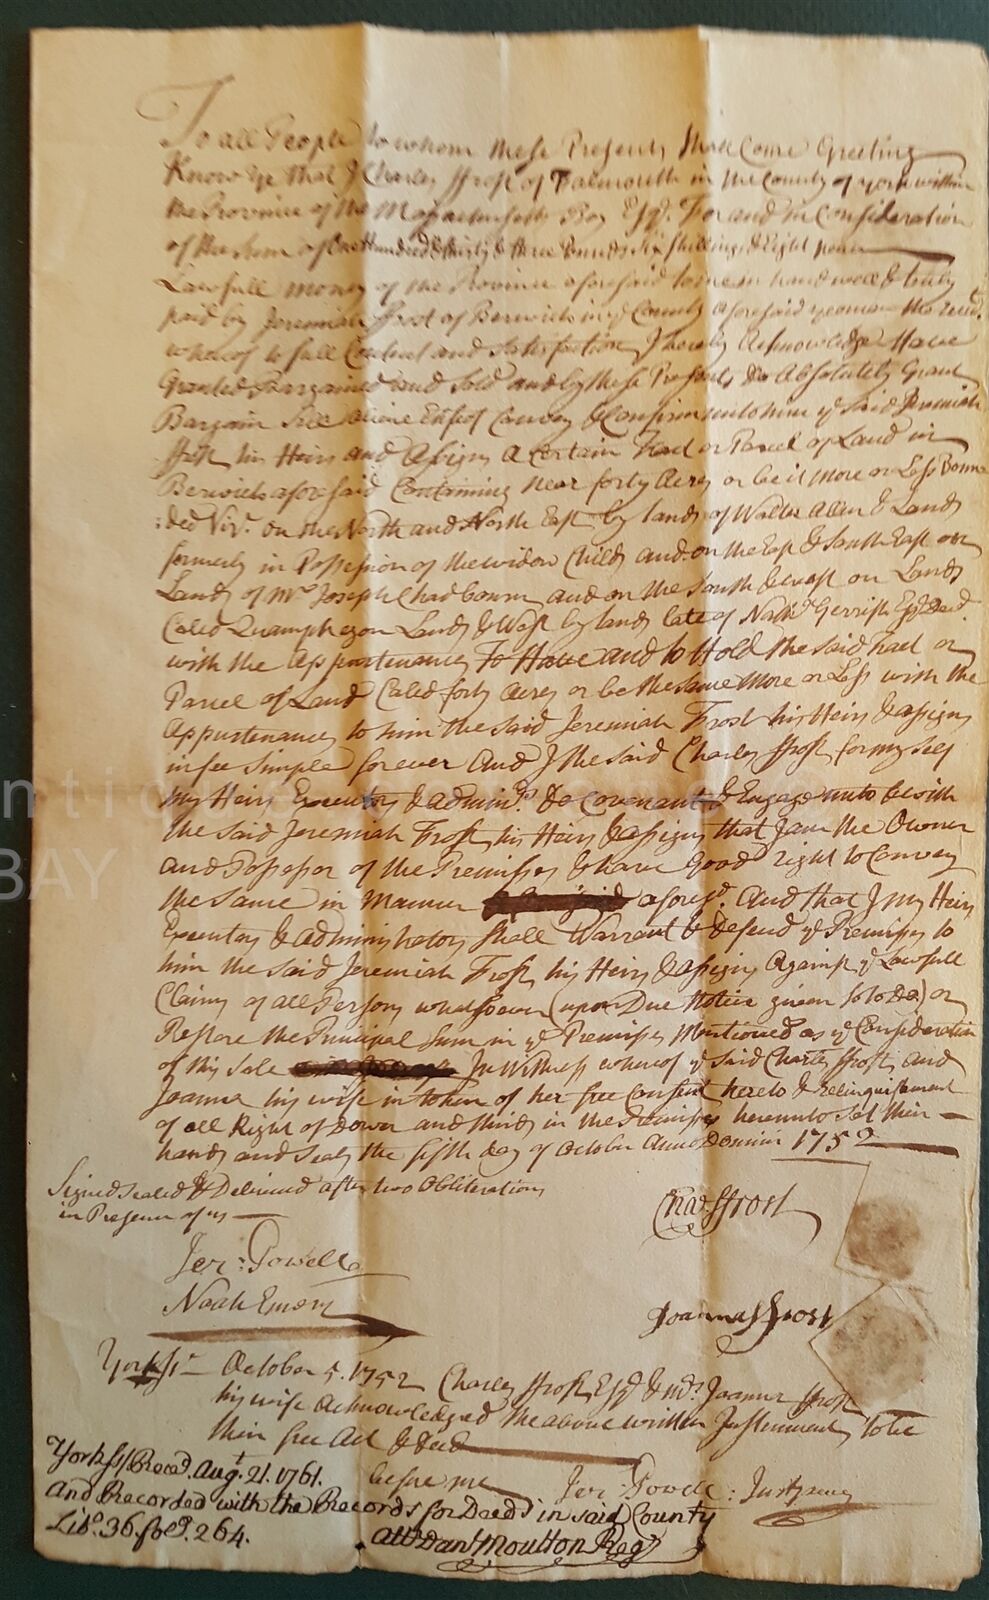 To all People to whom these Presents Shall Come Greeting
Know Ye that I Charles ffrost of Falmouth in the County of york within
the Province of the Massachusetts Bay Esqr. For and in Consideration
of the Sum of One Hundred & thirty & three Pounds Six Shillings & Eight pence
Lawfull money of the Province aforesaid to me in hand well & truly
paid by Jeremiah Frost of Berwick in ye County aforesaid yeoman the receit
whereof to full Content and Satisfaction I hereby Acknowledge Have
Granted Bargained and Sold and by these Presents do Absolutely Grant
Bargain Sell Aliene Enfeof Convey & Confirm unto him ye said Jeremiah
ffrost his Heirs and Assigns a Certain tract or Parcel of Land in
Berwick aforesaid Containing Near forty Acres or be it More or Less Boun
:ded Vizt. on the North and North East by lands of Walter Allen & Lands
formerly in Possession of the widow Childs and on the East & South East on
Lands of Mr Joseph Chadbourn and on the South & west on Lands
Caled Quamphegon Lands & West by lands late of Nathl. Gerrish Esqr. Decd.
with the Appurtenances To Have and to Hold the said tract or
Parcel of Land Caled forty Acres or be the same More or Less with the
Appurtenances to him the said Jeremiah Frost his Heirs & assigns
in fee Simple forever And I the said Charles ffrost for my self
my Heirs Executors & adminrs. do Covenant & Engage unto & with
the said Jeremiah Frost his Heirs & assigns that I am the Owner
and Possessor of the Premisses & Have Good right to Convey
the Same in Manner aforesd. And that I my Heirs
Executors & Administrators Shall Warrant & defend ye Premisses to
him the said Jeremiah Frost his Heirs & assigns Against ye Lawfull
Claims of all Persons whatsoever (upon Due Notice given so to do) or
Restore the Principal Sum in ye Premisses Mentioned as ye Consideration
of this Sale In Witness whereof ye said Charles ffrost and
Joanna his wife in token of her free Consent hereto & relinquishment
of all Right of Dower and thirds in the Premisses hereunto set their
hands and Seals the fifth day of October Anno Domini 1752
Signed sealed & Delivered after two Obliterations
in Presence of us
Chas ffrost
Jer: Powell
Noah Emery
Joanna ffrost
York ss October 5. 1752 Charles ffrost Esqr. & Mrs. Joanna ffrost
his wife Acknowledged the above written Instrument to be
their free Act & deed
before me Jer: Powell: Just peace
York ss/ Recd. Augt. 21. 1761.
And Recorded with the Records for Deeds in said County
Libo. 36. fol. 264.
Attr Danl Moulton Regr